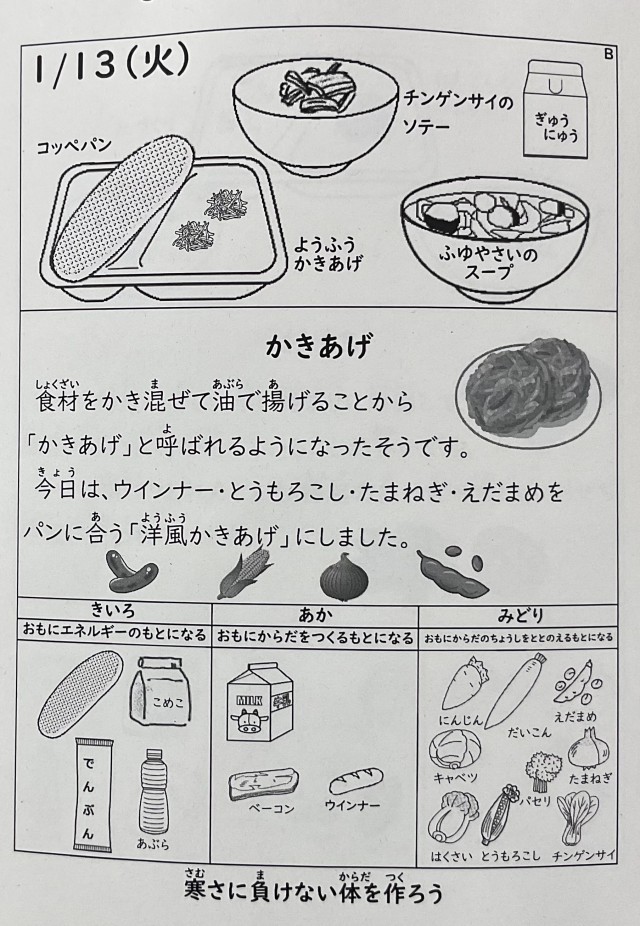 1/13(火)
B
チンゲンサイの
ソテー
ぎゅう
にゅう
コッペパン
ようふう
かきあげ
ふゆやさいの
スープ
かきあげ
食材をかき混ぜて油で揚げることから
「かきあげ」と呼ばれるようになったそうです。
今日は、ウインナー・とうもろこし・たまねぎ・えだまめを
パンに合う「洋風かきあげ」にしました。
きいろ
おもにエネルギーのもとになる
あか
おもにからだをつくるもとになる
みどり
おもにからだのちょうしをととのえるもとになる
こめこ
でんぷん
あぶら
MILK
ベーコン
ウインナー
にんじん
だいこん
えだまめ
キャベツ
パセリ
たまねぎ
はくさい
とうもろこし
チンゲンサイ
寒さに負けない体を作ろう